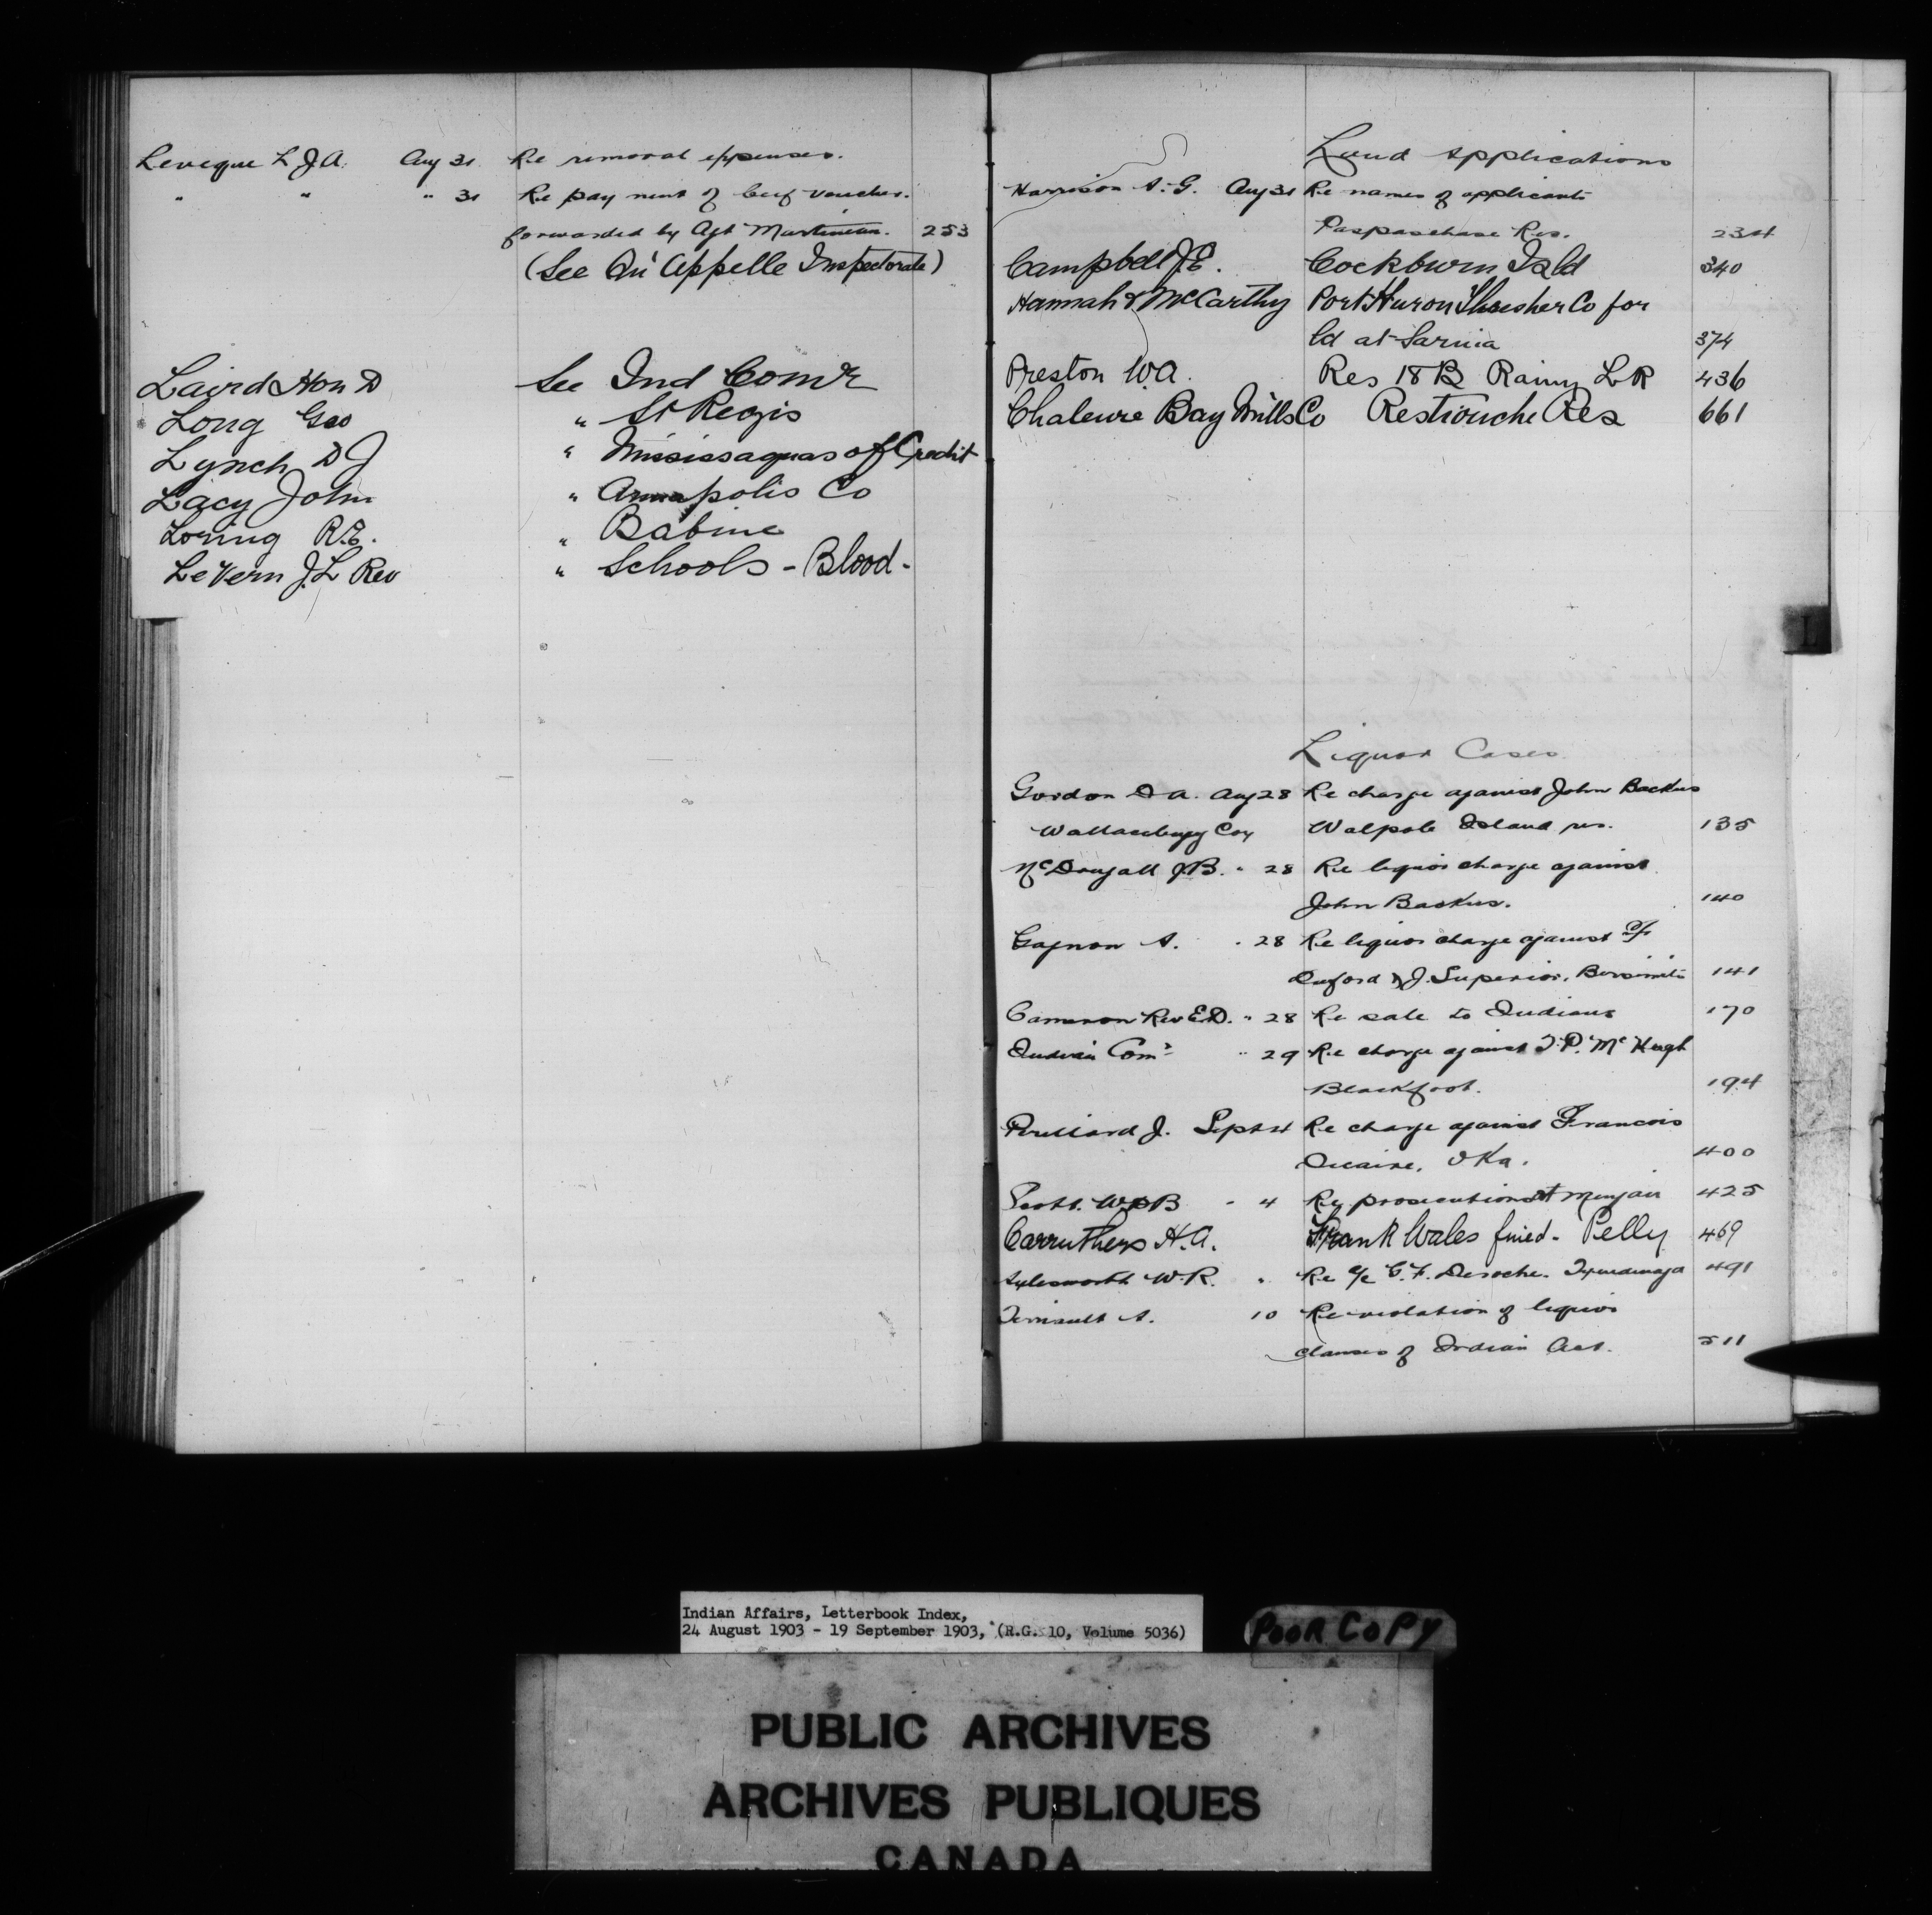 Leveque L J A. Aug 31 Re removal expenses.
" " " 31 Re payment of beef voucher.
forwarded by Agt Martineau. 253
(See Qu'Appelle Inspectorate)
Laird Hon D See Ind Comr
Long Geo " St Regis
Lynch D J " Mississaguas of Credit
Lacy John " Annapolis Co
Loring R.E. " Babine
LeVern J.L Rev " Schools - Blood -
Land Applications
Harrison A. G. Aug 31 Re names of applicants
Paspaschase Res. 234
Campbell J.E. Cockburn Isld 340
Hannah & McCarthy Port Huron Thresher Co for
ld at Sarnia 374
Preston W.A. Res 18 B Rainy L R 436
Chaleure Bay Mills Co Restiouche Res 661
Liquor Cases
Gordon D A. Aug 28 Re charge against John Backus
Wallaceburg Walpole Island res. 135
McDougall J.B. " 28 Re liquor charge against
John Backus. 140
Gagnon A. " 28 Re liquor charge against
& J. Superior, Bersimits 141
Cameron Rev E.D. " 28 Re sale to Indians 170
Indian Comr " 29 Re charge against J.P. McHugh
Blackfoot. 194
J. Sept 4 Re charge against Francois
Oka. 400
Scott. W B " 4 Re prosecutions at 425
Carruthers H.A. Frank Wales fined - Pelly 469
Aylesworth W.R. " Re a/c G.F. Deroche. Tyendinaga 491
A. 10 Re violation of liquor
clauses of Indian Act. 511
L
Indian Affairs, Letterbook Index,
24 August 1903 - 19 September 1903, (R.G. 10, Volume 5036)
POOR COPY
PUBLIC ARCHIVES
ARCHIVES PUBLIQUES
CANADA